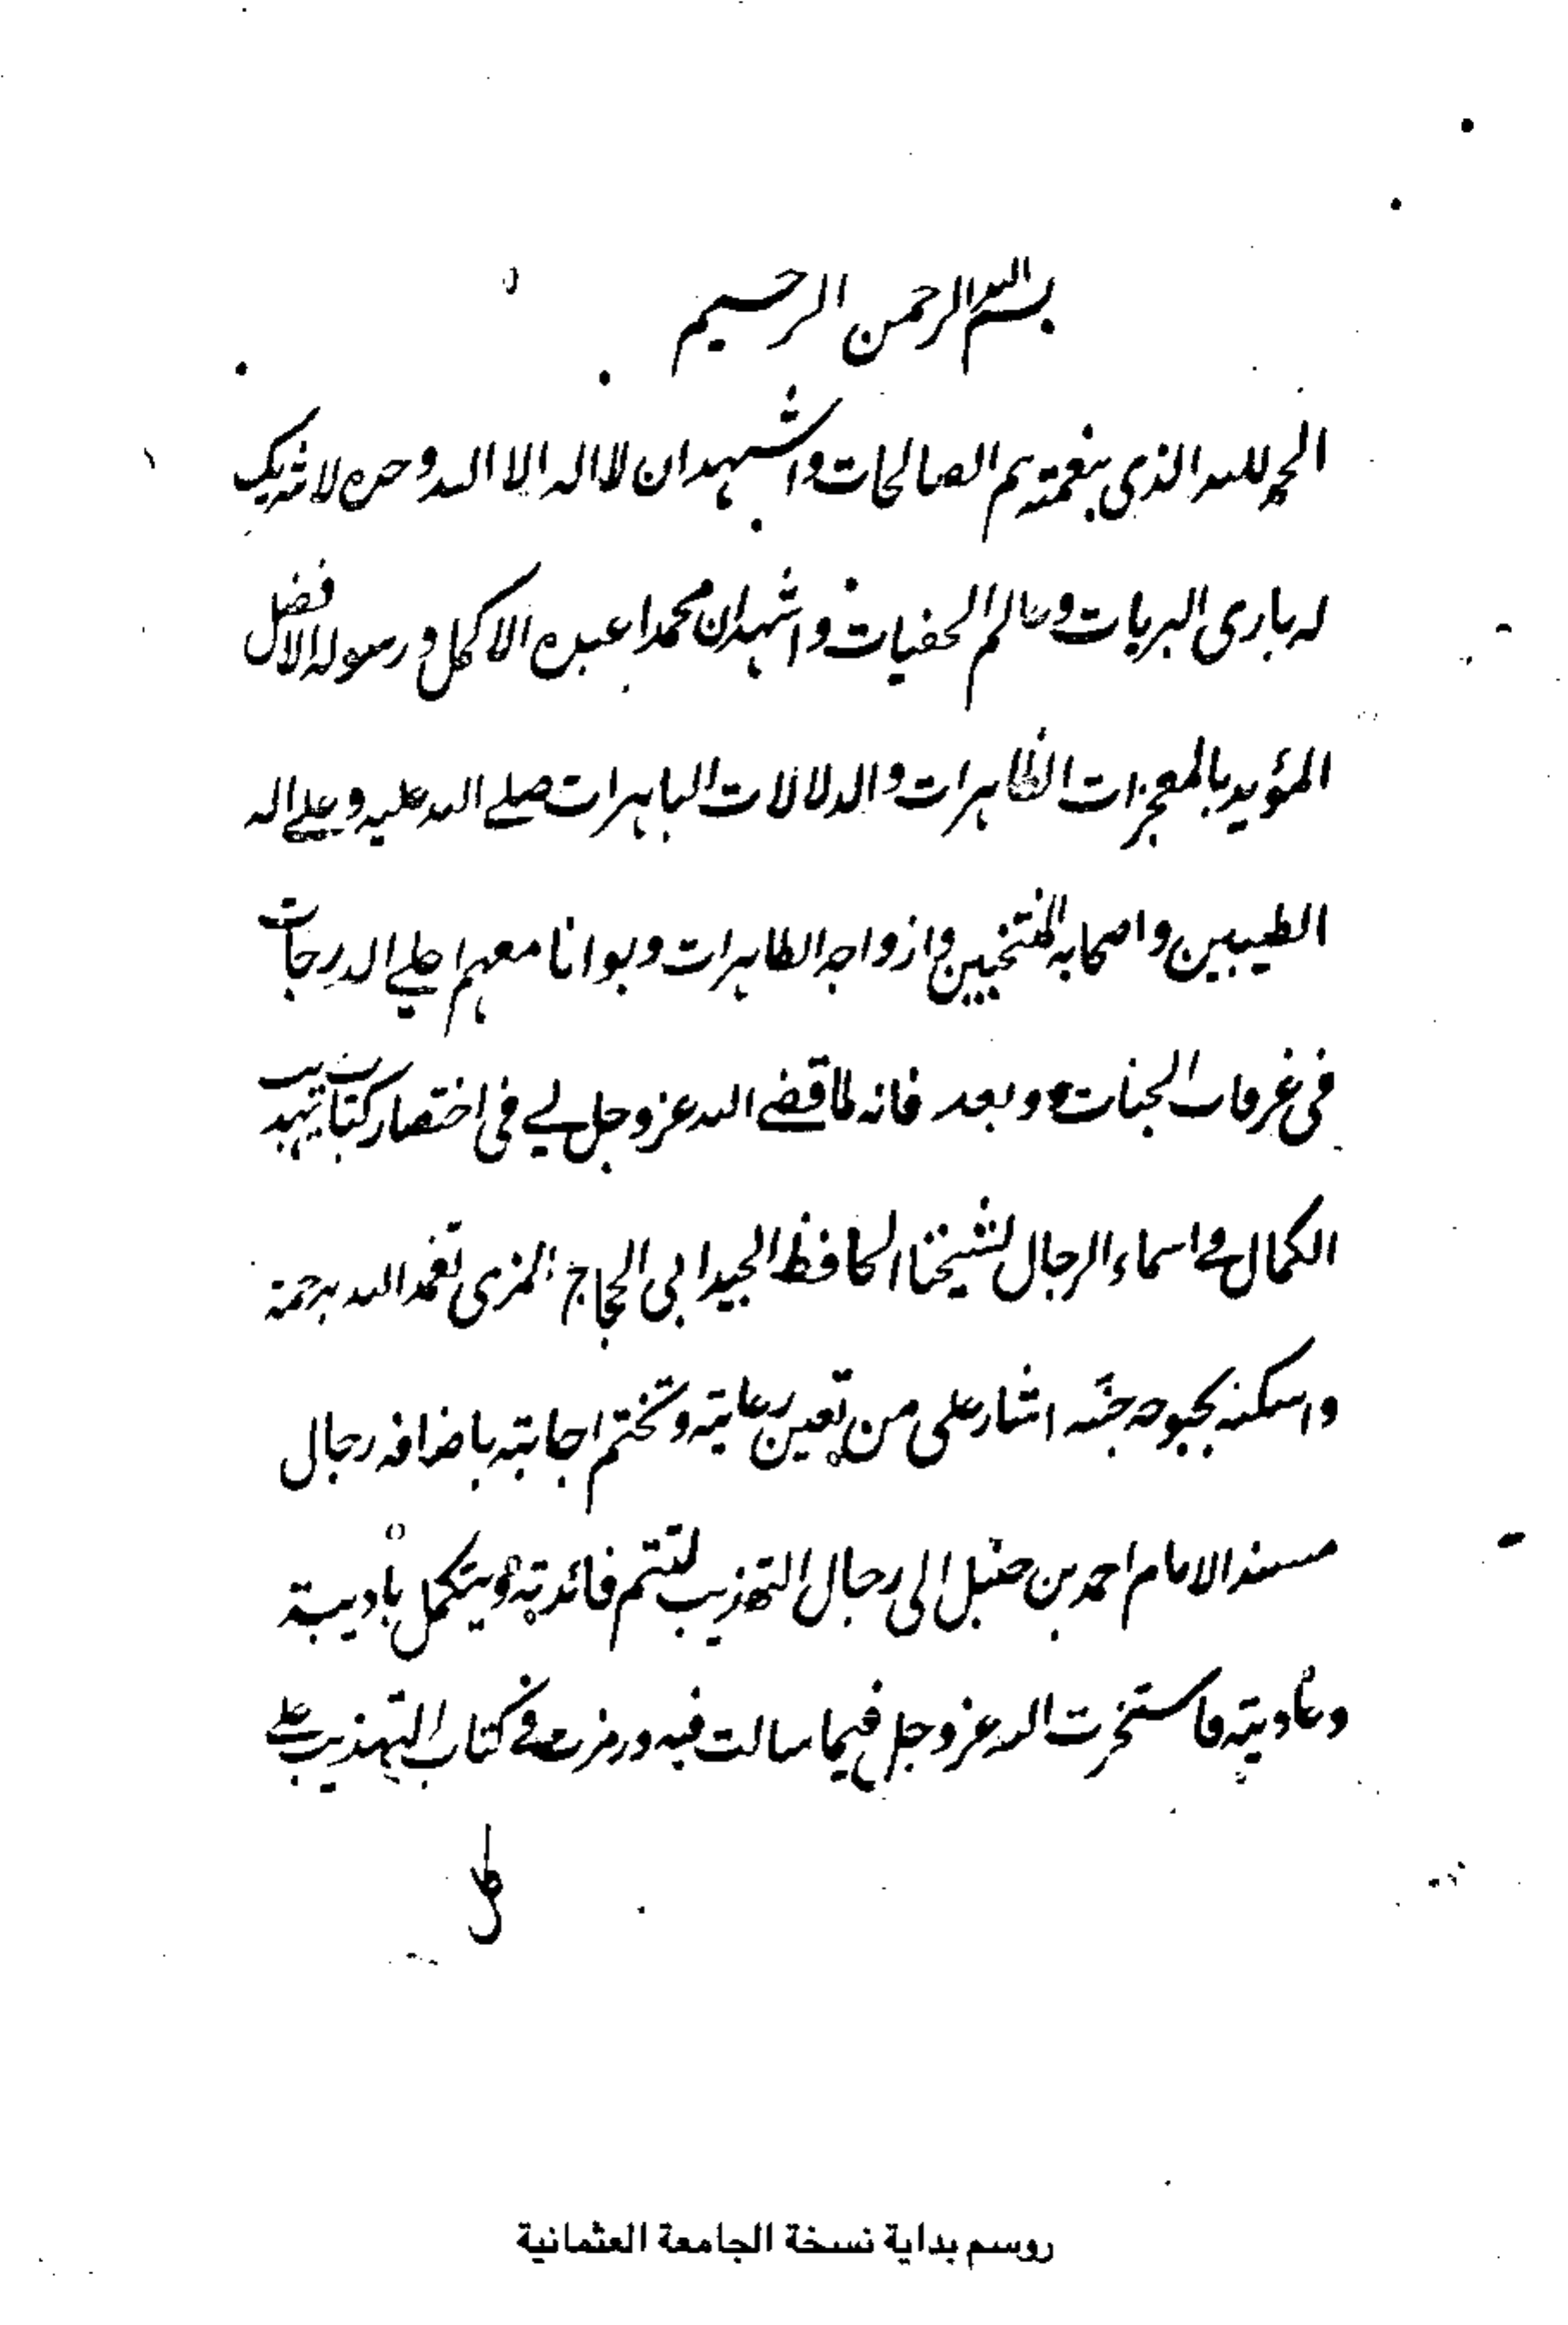 بسم الله الرحمن الرحيم
الحمد لله الذى بنعمته تتم الصالحات واشهد ان لا اله الا الله وحده لا شريك
له بارى البريات وعالم الخفيات واشهد ان محمدا عبده الاكمل ورسوله الافضل
المؤيد بالمعجزات الظاهرات والدلالات الباهرات صلى الله عليه وعلى اله
الطيبين واصحابه المنتخبين وازواجه الطاهرات وبوانا معهم اعلى الدرجات
فى غرفات الجنات وبعد فانه لما قضى الله عز وجل لى فى اختصار كتاب تهذيب
الكمال فى اسماء الرجال لشيخنا الحافظ الجيد ابى الحجاج المزى تغمد الله برحمته
واسكنه بحبوحه جنته اشار على من تعين رعايته وتختم اجابته باضافه رجال
مسند الامام احمد بن حنبل الى رجال التهذيب لتتم فائدته ويتكمل
فاستخرت الله عز وجل فيما سالت فيه ورمزت فى كتاب التهذيب على
روسم بداية نسخة الجامعة العثمانية